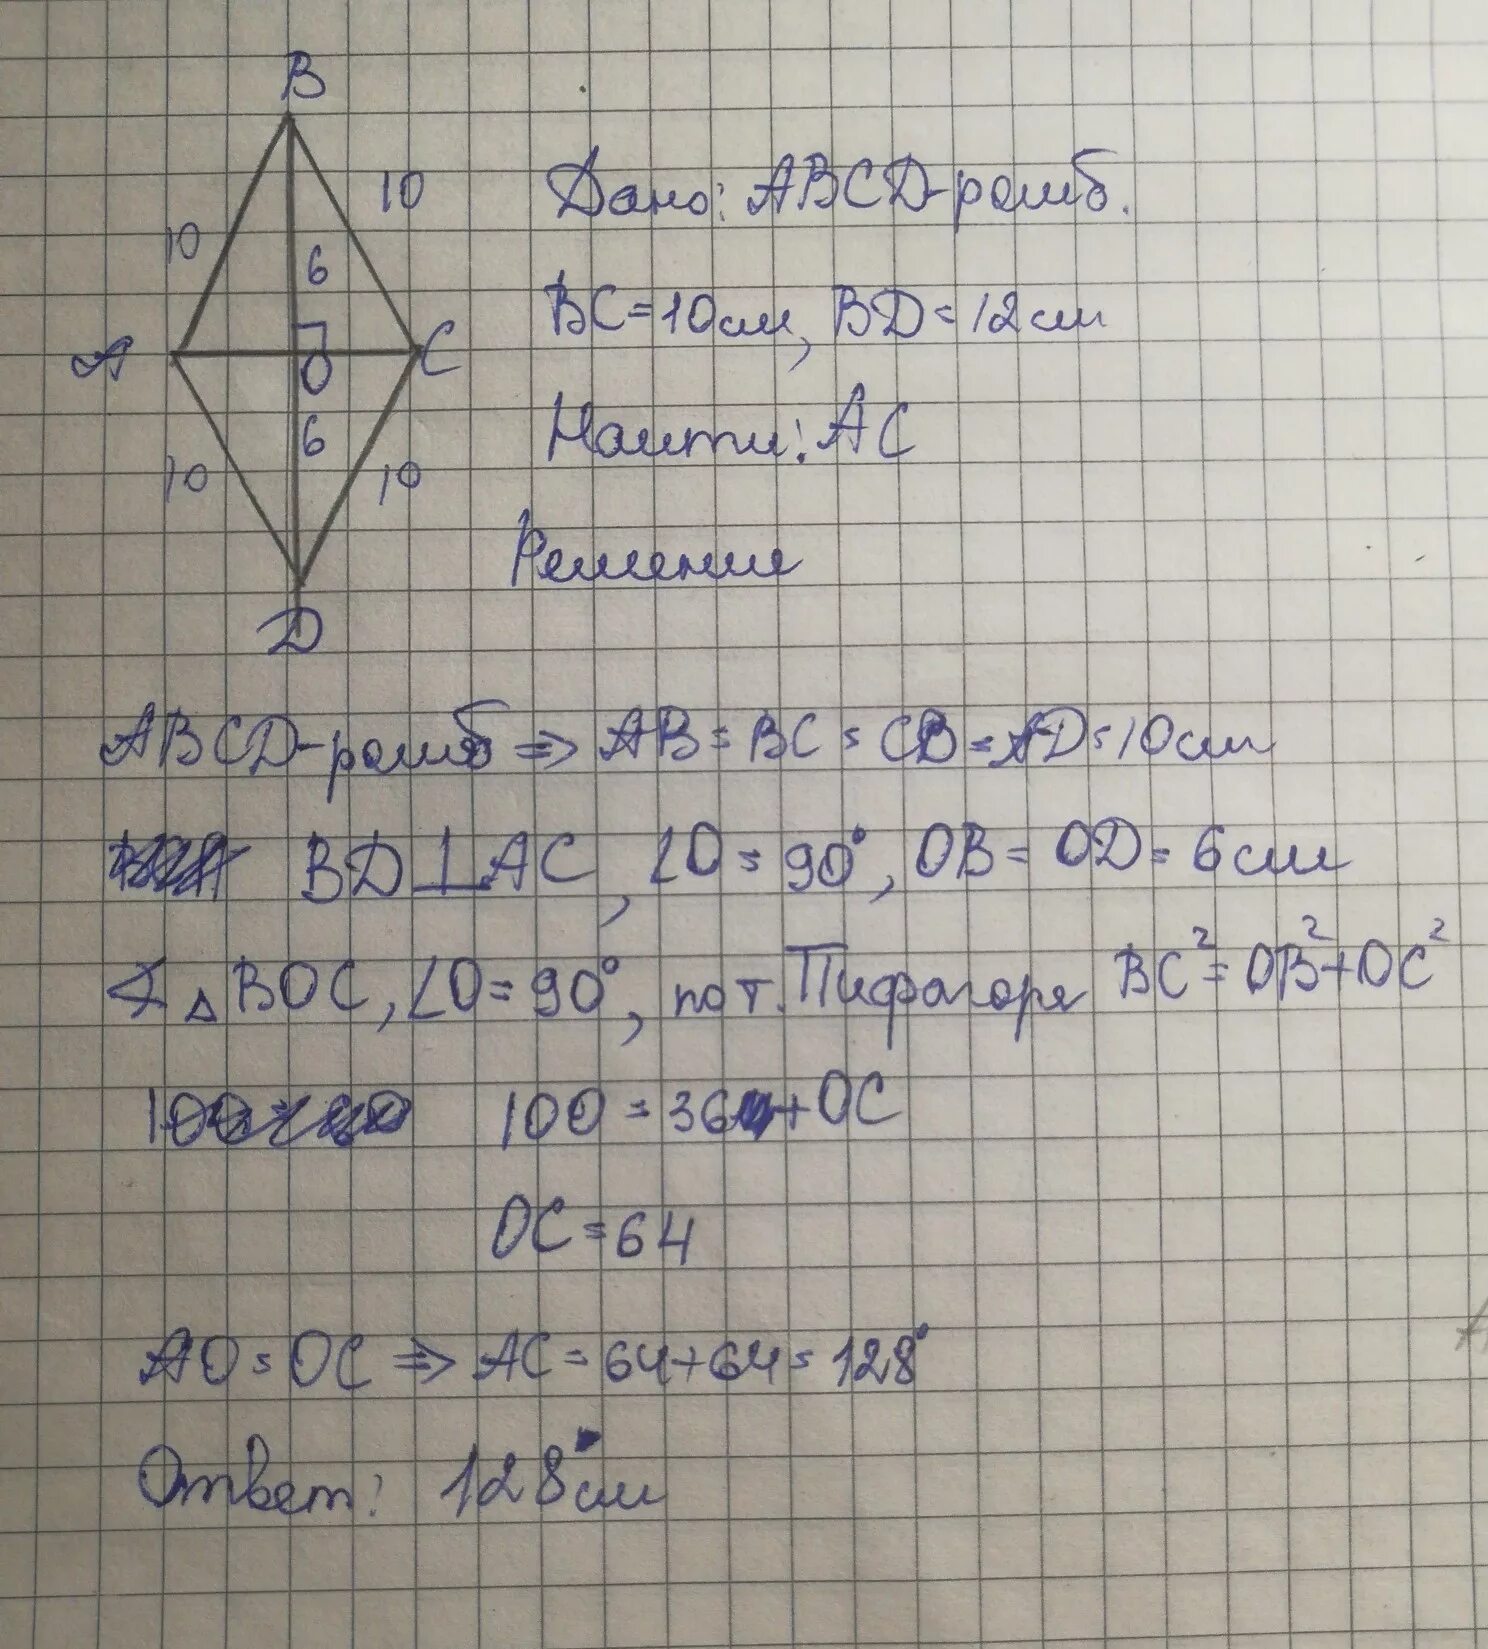 B
10
10
Дано: ABCD-ромб.
6
BC=10см, BD=12см
A
O
C
6
Найти: AC
10
10
Решение
D
ABCD-ромб => AB = BC = CD = AD = 10см
BD⊥AC, ∠O = 90°, OB = OD = 6см
∢ △BOC, ∠O = 90°, по т. Пифагора BC² = OB² + OC²
100 = 36 + OC
OC = 64
AO = OC => AC = 64 + 64 = 128°
Ответ: 128см